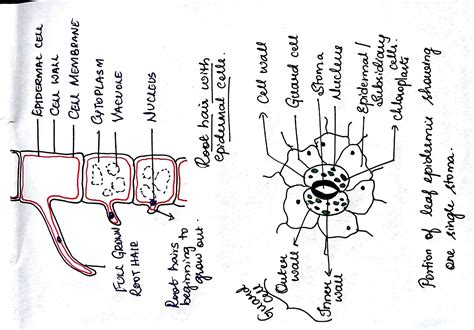 EPIDERMAL CELL
CELL WALL
CELL MEMBRANE
CYTOPLASM
VACUOLE
NUCLEUS
FULL GROWN
ROOT HAIR
Root hairs
beginning to
grow out.
Root hair with
epidermal cells.
Cell wall
Guard cell
Stoma
Nucleus
Epidermal /
Subsidiary
cells.
chloroplasts
Guard
cell
Outer
wall
Inner
wall
Portion of leaf epidermis showing
one single stoma.